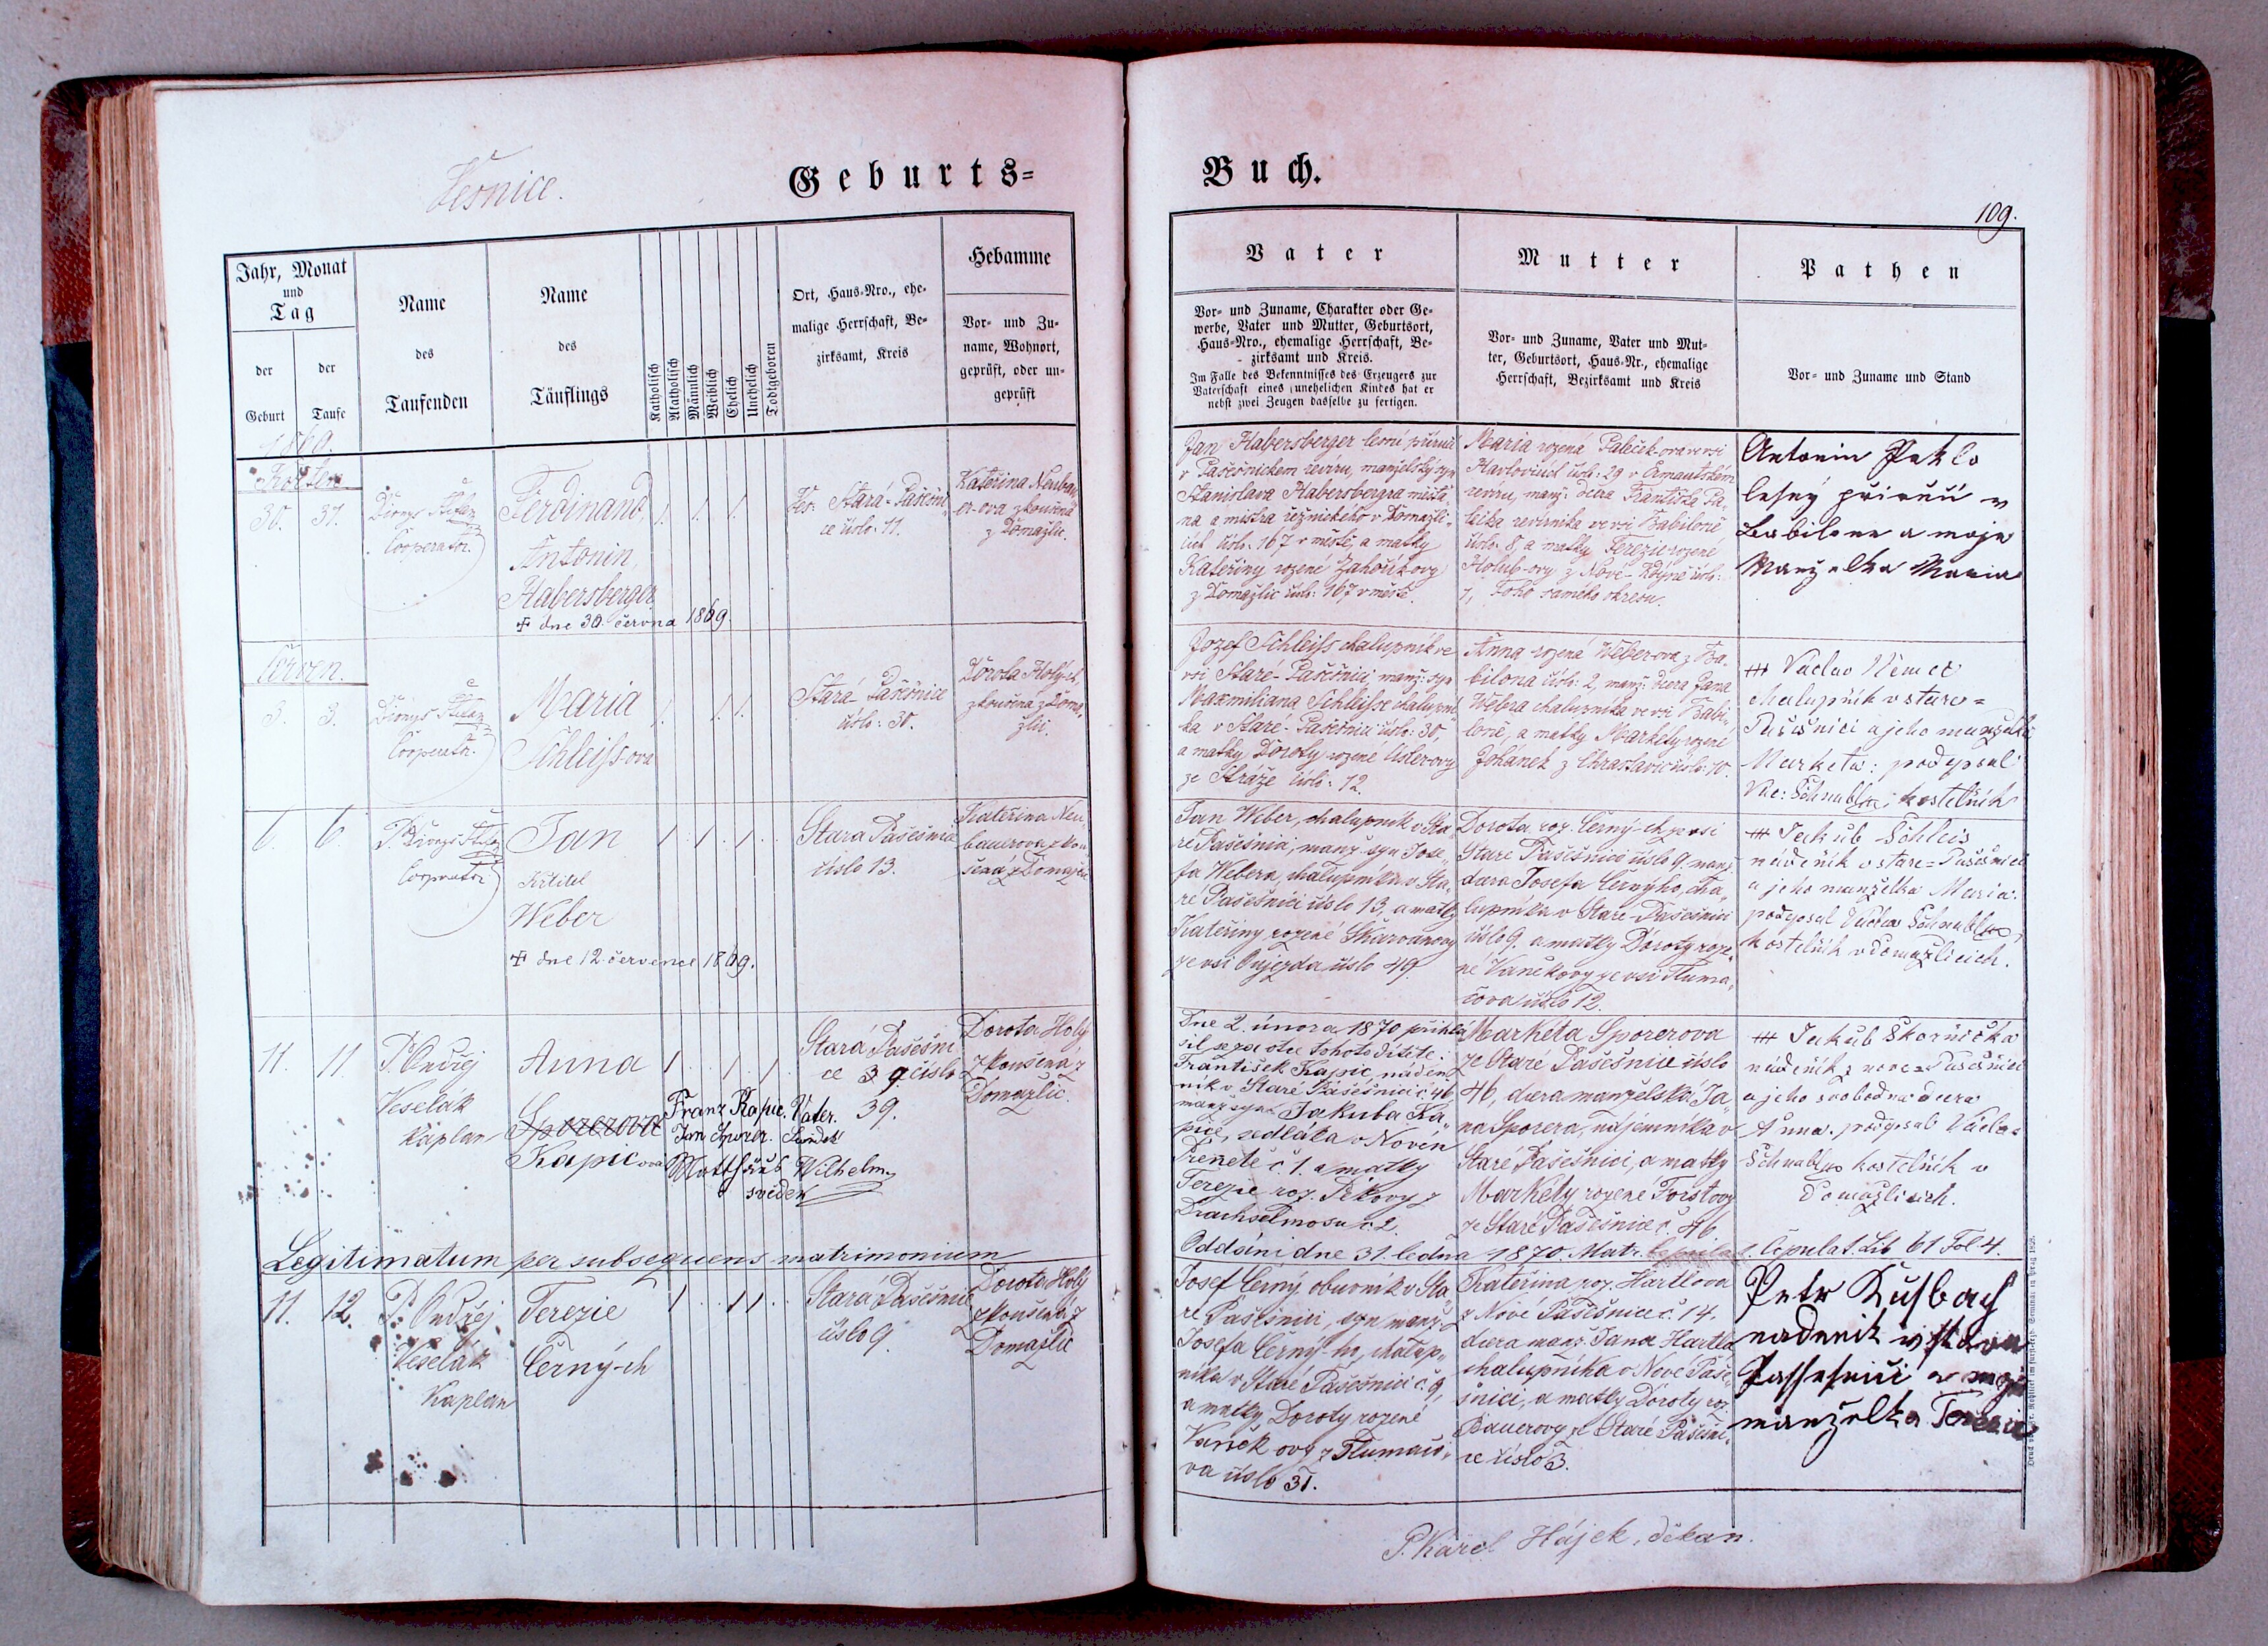 Geburts=
Buch.
109.
Jahr, Monat
und
Tag
der
Geburt
der
Taufe
Name
des
Taufenden
Name
des
Täuflings
Katholisch
Akatholisch
Männlich
Weiblich
Ehelich
Unehelich
Todtgeboren
Ort, Haus-Nro., ehe-
malige Herrschaft, Be-
zirksamt, Kreis
Hebamme
Vor- und Zu-
name, Wohnort,
geprüft, oder un-
geprüft
Vater
Vor- und Zuname, Charakter oder Ge-
werbe, Vater und Mutter, Geburtsort,
Haus-Nro., ehemalige Herrschaft, Be-
zirksamt und Kreis.
Im Falle des Bekenntnisses des Erzeugers zur
Vaterschaft eines unehelichen Kindes hat er
nebst zwei Zeugen dasselbe zu fertigen.
Mutter
Vor- und Zuname, Vater und Mut-
ter, Geburtsort, Haus-Nr., ehemalige
Herrschaft, Bezirksamt und Kreis
Pathen
Vor- und Zuname und Stand
30. 31.
Cooperator.
Ferdinand
Antonin
Habersberger
✠ dne 30. června 1869.
1. 1. 1.
Stará-Pašešni
ce číslo: 11.
Kateřina Neubau
er-ova zkoušená
z Domažlic.
Jan Habersberger lesní
v Pašešnickém revíru, manželský syn
Stanislava Habersbergra měšťa,
na a mistra řeznického v Domažli,
cích číslo: 167 v městě, a matky
Kateřiny rozené
z Domažlic číslo: 167 v městě.
Maria rozená Paleček-ova ve vsi
číslo: 29 v
revíru, manž: dcera Františka Pa,
lečka revírníka ve vsi Babiloně
číslo: 8, a matky Terezie rozené
Holub-ovy z Nové-Kdyně číslo:
7, Toho samého okresu.
Antonin
v
Babilone a moje
Manzelka Maria
Červen.
3. 3.
Cooperator.
Maria
Schleiss-ova
1. 1. 1.
Stará-Pašešnice
číslo: 30.
Dorota Holých
zkoušená z Doma,
žlic.
Jozef Schleiss chalupník ve
vsi Staré-Pašešnici, manž: syn
Maxmiliana Schleisse chalupní
ka v Staré-Pašešnici číslo: 30,
a matky Doroty rozené
ze Stráže číslo: 12.
Anna rozená Weber-ova z Ba,
bilona číslo: 2, manž: dcera Jana
Webra chalupníka ve vsi Babi,
loně, a matky Markéty rozené
Johánek z Chrastavic číslo: 10.
+++ Václav Němec
chalupník v staré=
Pašešnici a jeho manželka
Markéta: podepsal
Vác: Schnabl kostelník
6. 6.
Cooperator
Jan
Křtitel
Weber
✠ dne 12. července 1869.
1. 1. 1.
Stará Pašešnice
číslo 13.
Kateřina Neu,
bauerova zkou
šená z Domažlic
Jan Weber, chalupník v Sta
ré Pašešnici, manž. syn Jose,
fa Webera, chalupníka v Sta,
ré Pašešnici číslo 13, a matky
Kateřiny rozené Skarvanovy
ze vsi Oujezda číslo 49.
Dorota roz. Černý-ch ze vsi
Staré Pašešnice číslo 9. manž.
dcera Josefa Černýho, cha,
lupníka v Staré-Pašešnici
číslo 9. a matky Doroty roze,
né Vaněkovy ze vsi Tluma,
čova číslo 12.
+++ Jakub Schleis
nádeník v staré=Pašešnici
a jeho manželka Maria.
podepsal Václav Schnabl
kostelník v Domažlicích.
11. 11.
P. Ondřej
Veselák
Kaplan
Anna
Sporerova
Kapic ova
1. 1. 1.
Stará Pašešni
ce 39 číslo
39.
Dorota Holý
zkoušená z
Domažlic.
Franz Kapic. Vater.
Jan Sporer. Svědek
Wilhelm
svědek
Dne 2. února 1870 přihlá
sil se za otce tohoto dítěte:
František Kapic, náden,
ník v Staré Pašešnici č. 46,
manž. syn Jakuba Ka,
pice, sedláka v Novém
č. 1. a matky
Terezie roz.
č. 2.
Markéta Sporerova
ze Staré Pašešnice číslo
46, dcera manželská Ja,
na Sporera, nájemníka v
Staré Pašešnici, a matky
Markéty rozené Foistovy
ze Staré Pašešnice č. 46
+++ Jakub Skornička
nádeník z nové=Pašešnice
a jeho svobodna dcera
Anna. podepsal Václav
Schnabl kostelník v
Domažlicích.
Legitimatum per subsequens matrimonium
Oddáni dne 31. ledna 1870. Matr. Copulat. Lib 61 Fol 4.
11. 12.
P. Ondřej
Veselák
Kaplan
Terezie
Černý-ch
1. 1 1
Stará Pašešnice
číslo 9.
Dorota Holý
zkoušená z
Domažlic
Josef Černý, obuvník v Sta
ré Pašešnici, syn manž.
Josefa Černý-ho, chalup,
níka v Staré Pašešnici č. 9,
a matky Doroty rozené
Vaněk ovy z Tlumačo,
va číslo 31.
Kateřina roz. Hartlova
z Nové Pašešnice č. 14.
dcera manž. Jana Hartla,
chalupníka v Nové Paše,
šnici, a matky Doroty roz.
Bauerovy ze Staré Pašešni,
ce číslo 3.
Petr Kusbach
nadenik
a moje
manzelka Terezie
P. Karel Hájek, děkan.